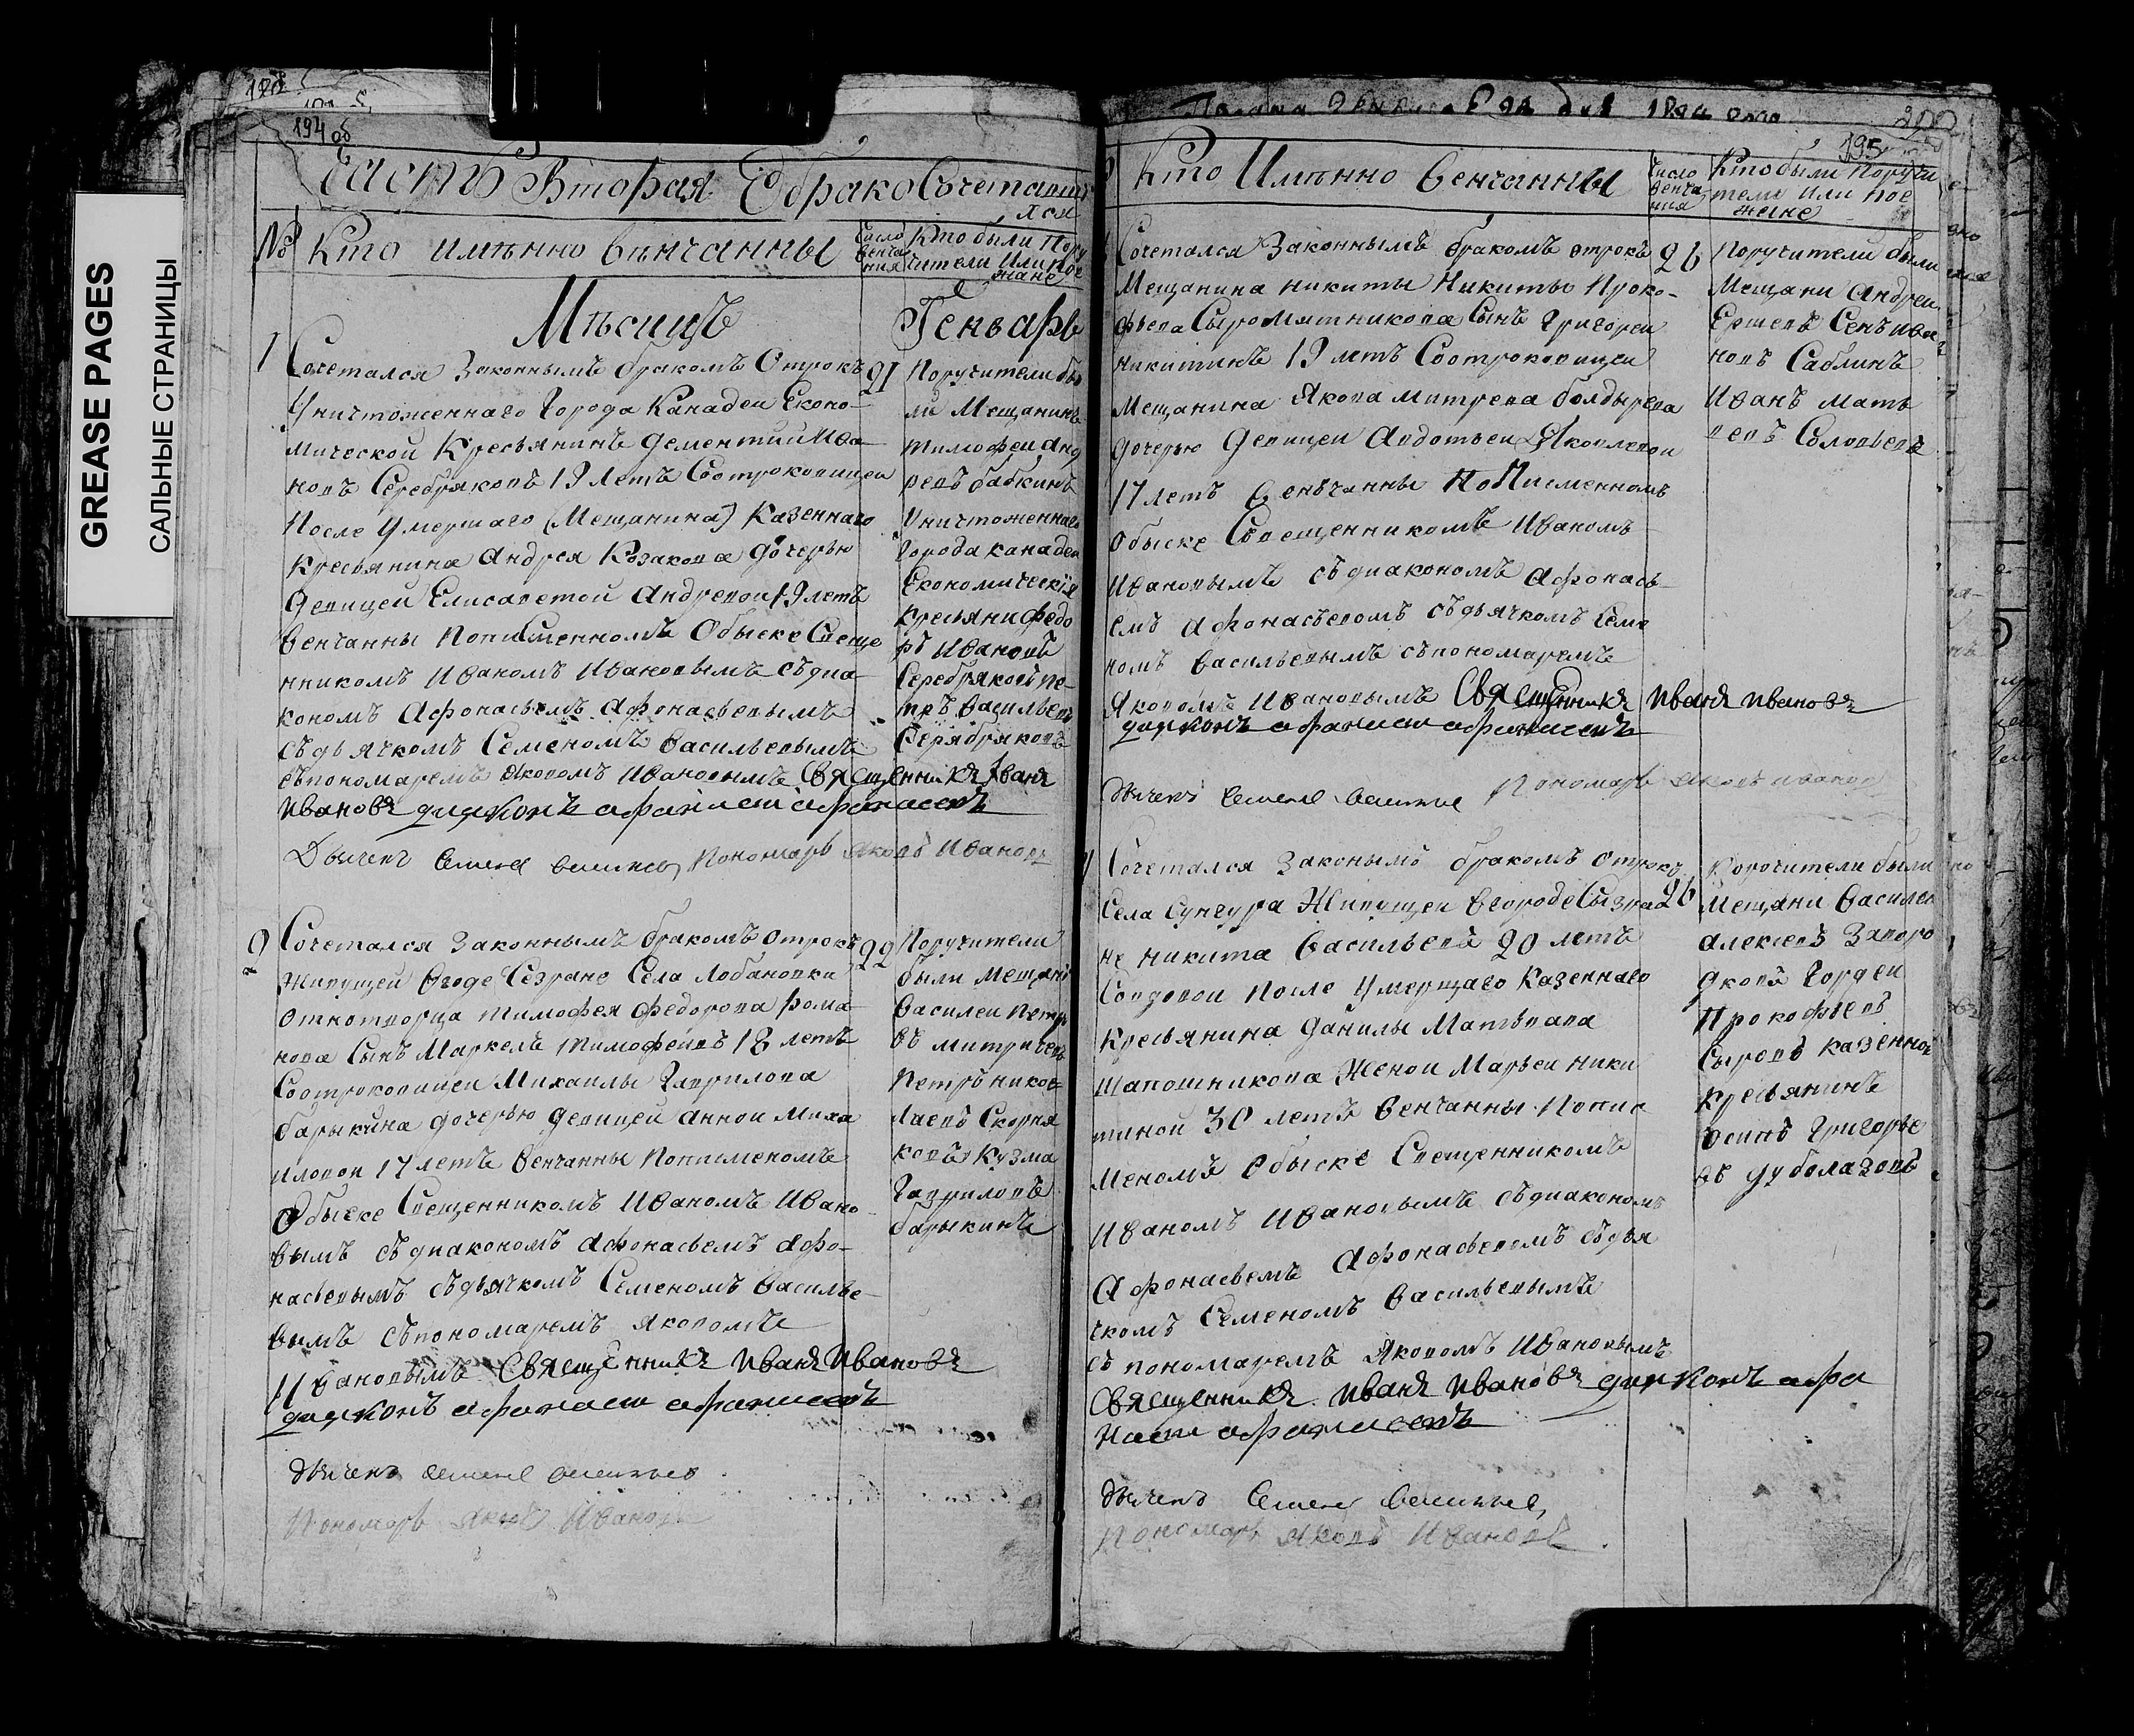 GREASE PAGES
САЛЬНЫЕ СТРАНИЦЫ
194 об
Часть Вторая О бракосочетавши
хся
№
Кто имѣнно вѣнчанны
Число венча ния
Кто были пору
чители или пое
жане
Мѣсицъ
Генварь
1
Сочетался законнымъ бракомъ отрокъ
Уничтоженнаго города Канадеи Еконо-
мической кресьянинъ Дементий Ива
новъ Серебряковъ 19 летъ Соотроковицеи
После умершаго (Мещанина) Казеннаго
кресьянина Андрея Козакова дочерью
Девицеи Елисаветой Андревои 19 летъ
венчанны пописменномъ обыске Свеще
нникомъ Иваномъ Ивановымъ съдиа-
кономъ Афонасьемъ Афонасьевымъ
съдьячкомъ Семеномъ Васильевымъ
съпономаремъ Яковомъ Ивановымъ Священникъ Иванъ
Ивановъ диаконъ афанасии афанасевъ
Дьячекъ Семенъ Васильевъ Пономарь Яковъ Ивановъ
21
Поручители бы
ли Мещанинъ
Тимофеи Анд
ревъ бабкинъ
Уничтоженнаго
города канадеи
Економическия
кресьяни федо
ръ Ивановъ
Серебряковъ пе-
тръ Васильевъ
Серябряковъ
2
Сочетался законнымъ бракомъ отрокъ
Живущей вгоде Сезране Села Лобановки
Отпотворца тимофея федорова рома
нова Сынъ Маркелъ тимофеивъ 18 летъ
Соотроковицеи Михаилы Гаврилова
барыкина дочерью девицей анной миха
иловои 17 летъ венчанны пописменомъ
Обыске Свещенникомъ Иваномъ Ивано-
вымъ съдиакономъ афонасьемъ афо-
насьевымъ съдьячкомъ Семеномъ Василье-
вымъ съпономаремъ Яковомъ
Ивановымъ Священникъ Иванъ Ивановъ
диаконъ афанасии афанасевъ
Дьячекъ Семенъ Васильевъ
Пономарь Яковъ Ивановъ
22
Поручители
были мещани
Василеи петро
въ митричевъ
Петръ никол
лаевъ Скорня
ковъ Кузма
Гаврилов
барыкинъ
200
195
Кто Имѣнно венчанны
Число венча ния
Кто были поручи
тели или пое
жане
Сочетался законнымъ бракомъ отрокъ
Мещанина никиты Никиты Проко-
фьева Сыромятникова Сынъ григореи
никитинъ 19 летъ Соотроковицеи
Мещанина Якова митрева болдырева
дочерью девицеи Авдотьеи Яковлевои
17 летъ венчанны По Писменномъ
обыске Свещенникомъ Иваномъ
Ивановымъ съдиакономъ афонась-
емъ афонасьевомъ съдьячкомъ Семе
номъ Васильевымъ съпономаремъ
Яковомъ Ивановымъ Священникъ Иванъ Ивановъ
диаконъ афанасии афанасевъ
Дьячекъ Семенъ Васильевъ Пономарь Яковъ Ивановъ
26
Поручители были
Мещани Андреи
Ершевъ Сенъ Ива
новъ Саблинъ
Иванъ мать
вевъ Соловьевъ
Сочетался законымъ бракомъ отрокъ
Села Сунгура Живущеи вгороде Сызра
не никита Васильевъ 20 летъ
Совдовои после умершаго Казеннаго
Кресьянина Данилы Матвѣава
шапошникова Женои Марьеи ники
тиной 30 летъ венчанны Попис
меномъ обыске Свещенникомъ
Иваномъ Ивановымъ съдиакономъ
Афонасьемъ Афонасьевомъ съдья
чкомъ Семеномъ Васильевымъ
съ пономаремъ Яковомъ Ивановымъ
Священникъ Иванъ Ивановъ диаконъ афа
насии афанасевъ
Дьячекъ Семенъ Васильевъ
Пономарь Яковъ Ивановъ
26
Поручители были
Мещани Василеи
алексеевъ Заворо
Гордеи
Прокофьевъ
Сыровъ казенной
Кресьянинъ
Осипъ Григорье
въ дуболазовъ